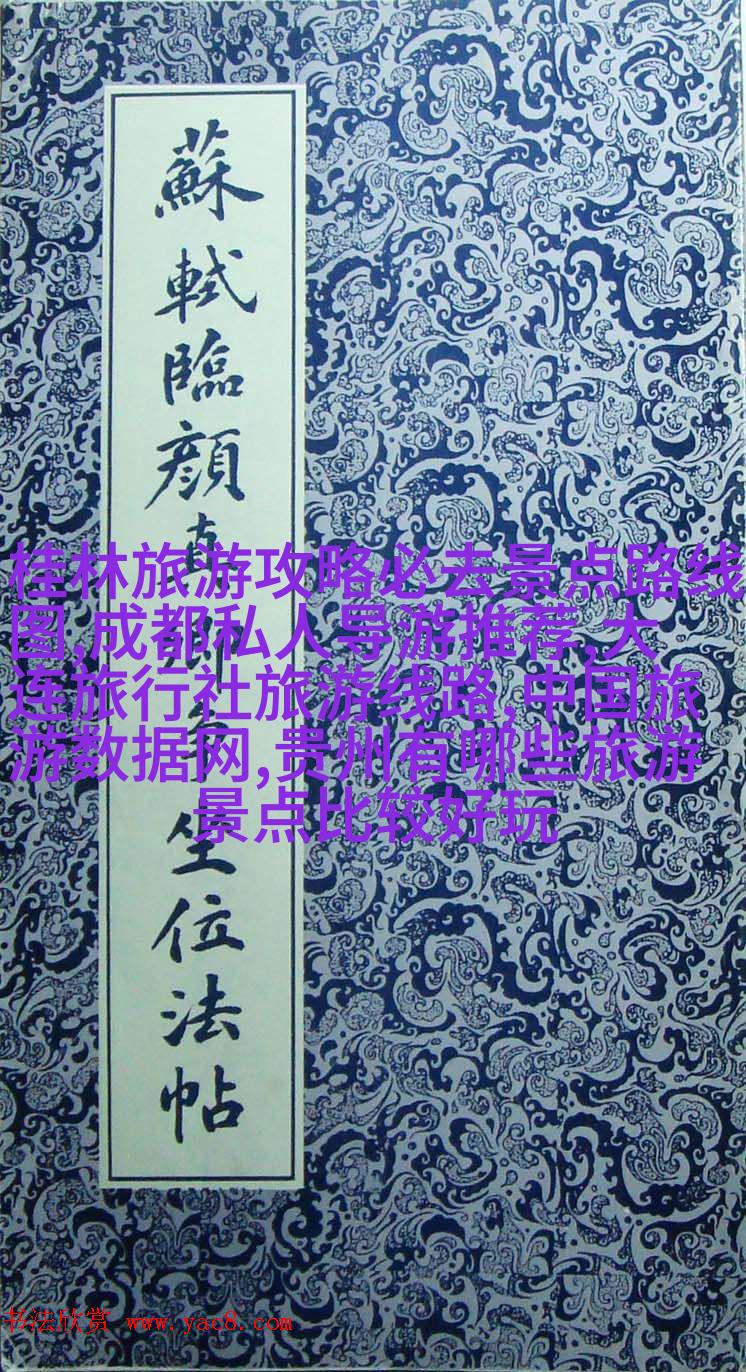 蘇軾臨顔真卿争坐位法帖
桂林旅游攻略必去景点路线
图,成都私人导游推荐,大
连旅行社旅游线路,中国旅
游数据网,贵州有哪些旅游
景点比较好玩
书法欣赏 www.yac8.com